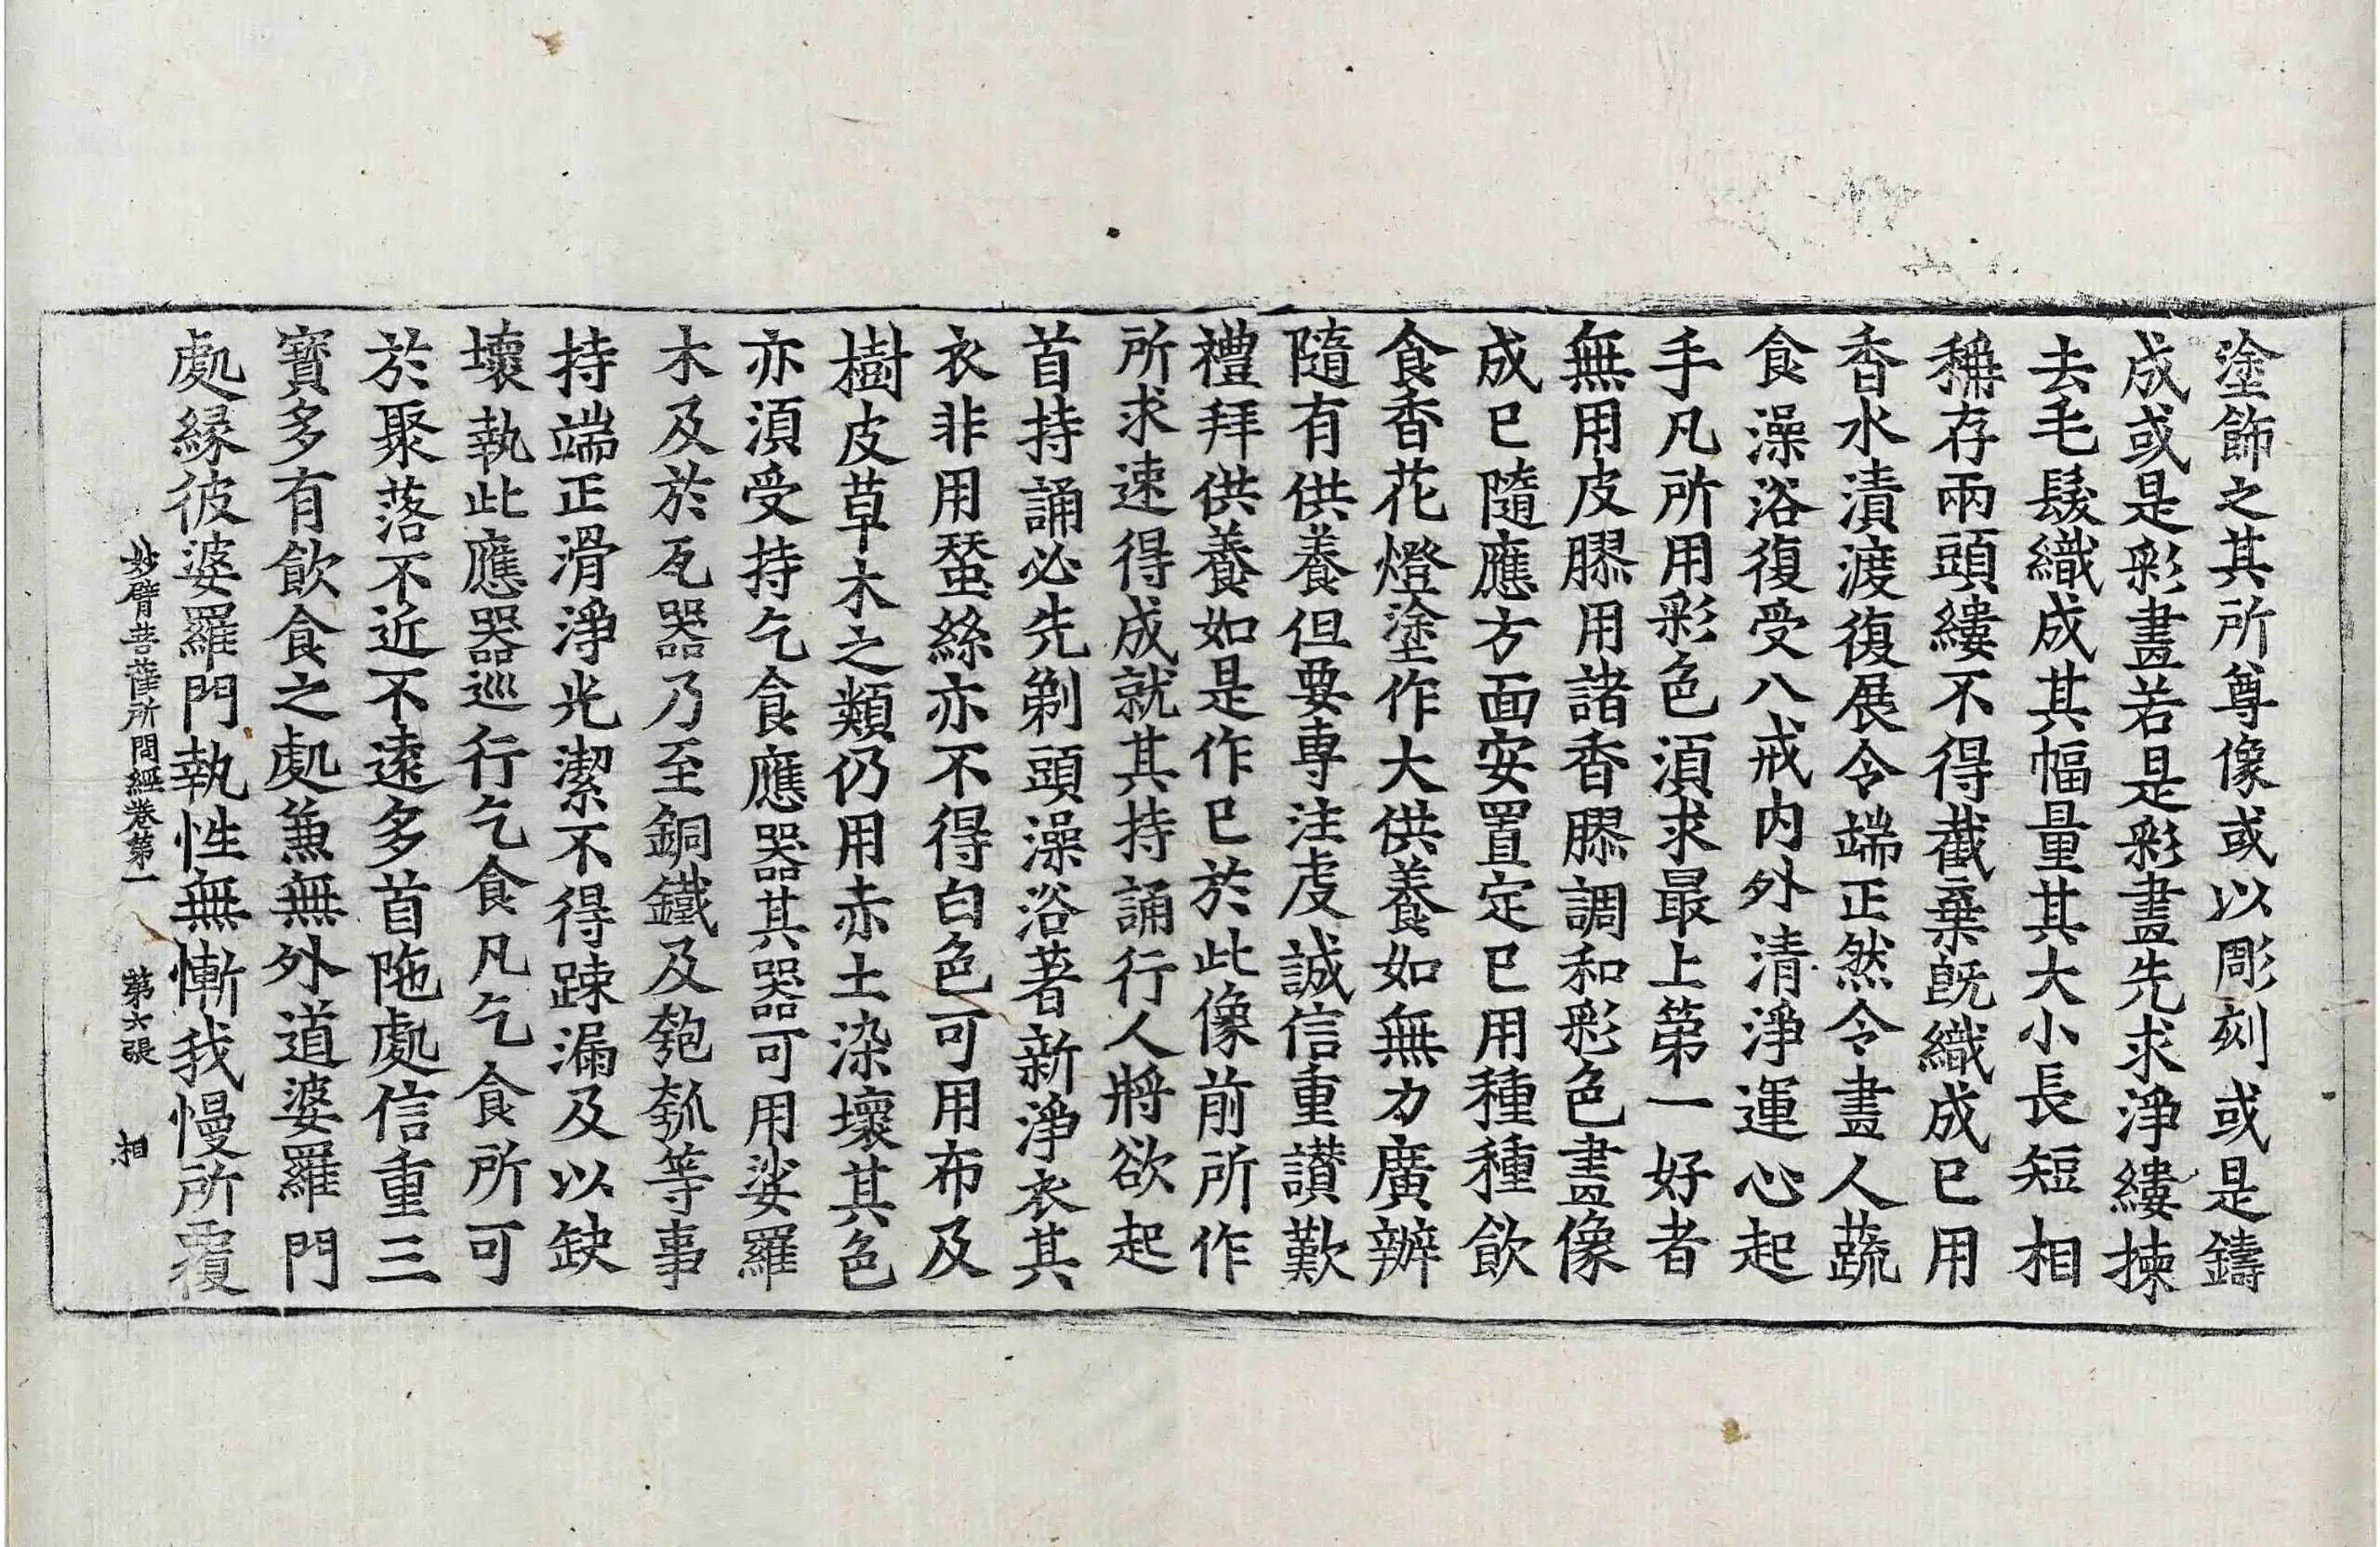 塗飾之其所尊像或以彫刻或是鑄
成或是彩畫若是彩畫先求淨縷揀
去毛髮織成其幅量其大小長短相
稱存兩頭縷不得截棄旣織成已用
香水漬渡復展令端正然令畫人蔬
食澡浴復受八戒内外清淨運心起
手凡所用彩色湏求最上第一好者
無用皮膠用諸香膠調和彩色畫像
成已隨應方面安置定已用種種飲
食香花燈塗作大供養如無力廣辦
隨有供養但要專注虔誠信重讃歎
禮拜供養如是作已於此像前所作
所求速得成就其持誦行人將欲起
首持誦必先剃頭澡浴著新淨衣其
衣非用蚕絲亦不得白色可用布及
樹皮草木之類仍用赤土染壞其色
亦湏受持乞食應器其器可用娑羅
木及於瓦器乃至銅鐵及匏瓠等事
持端正滑淨光潔不得踈漏及以缺
壞執此應器巡行乞食凡乞食所可
於聚落不近不遠多首陁處信重三
寶多有飲食之處兼無外道婆羅門
處縁彼婆羅門執性無慚我慢所覆
妙臂菩薩所問經卷第一　第六張　相